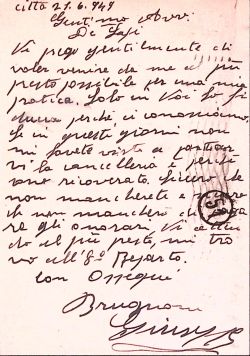 città 21. 6. 949
Gent.mo Avv.
De
Vi prego gentilmente di
voler venire da me al più
presto possibile per una mia
pratica. Solo in Voi ho fi-
ducia perché ci conosciamo.
Se in questi giorni non
mi avete visto a portar-
vi la cancelleria è perché
sono ricoverato. Sicuro che
non mancherete
che non mancherò di
re gli onorari. Vi atten-
do al più presto, mi tro-
vo all'8° Reparto.
Con Ossequi
Brugnoni
Giuseppe
51